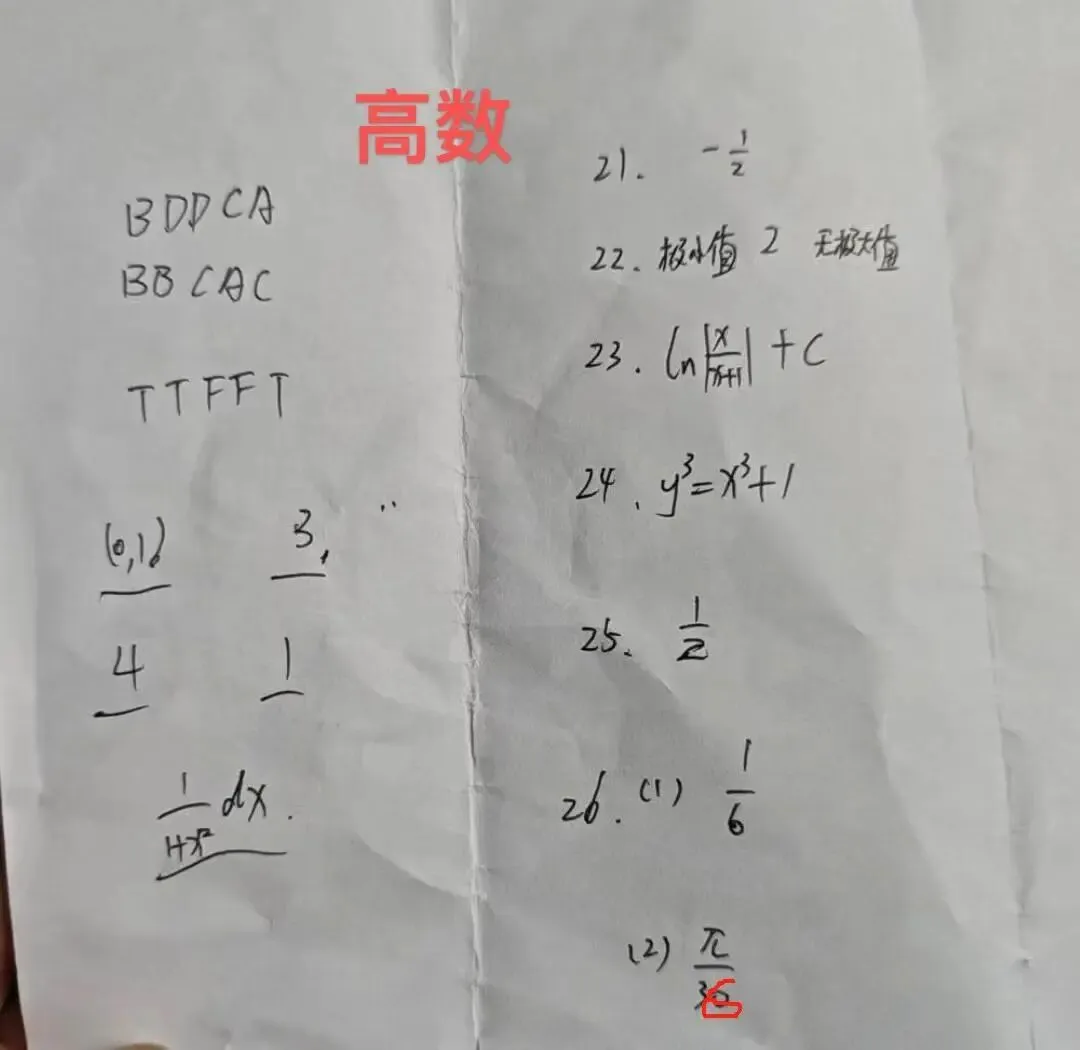 高数
BDDCA
BBCAC
TTFFT
(0,1)
3
4
1
1/(1+x²) dx.
21. -1/2
22. 极小值 2 无极大值
23. ln|x/(x+1)| + C
24. y³=x³+1
25. 1/2
26. (1) 1/6
(2) π/36